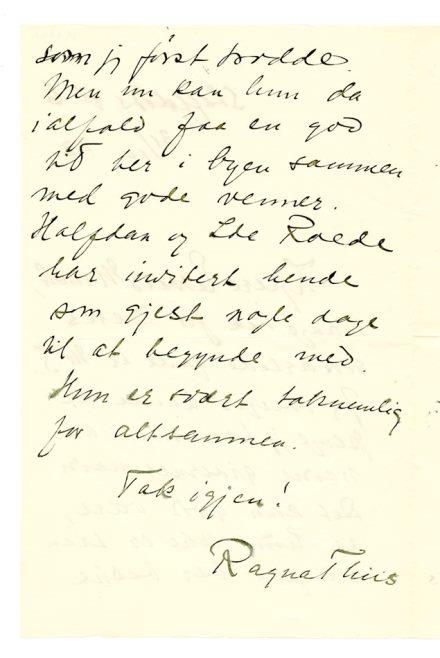 som jeg först trodde.
Men nu kan hun da
ialfald faa en god
tid her i byen sammen
med gode venner.
Halfdan og Ida Roede
har invitert hende
som gjest nogle dage
til at begynde med.
Hun er svært taknemlig
for altsammen.
Tak igjen!
Ragna Thiis